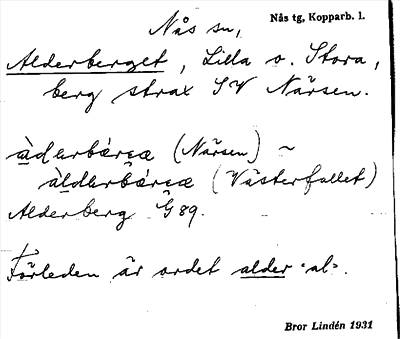 Nås sn,
Nås tg, Kopparb. l.
Alderberget, Lilla o. Stora,
berg strax SV Närsen.
àdərbǽrɛæ (Närsen) ~
àldərbǽrɛæ (Västerfallet)
Alderberg G 89.
Förleden är ordet alder "al".
Bror Lindén 1931